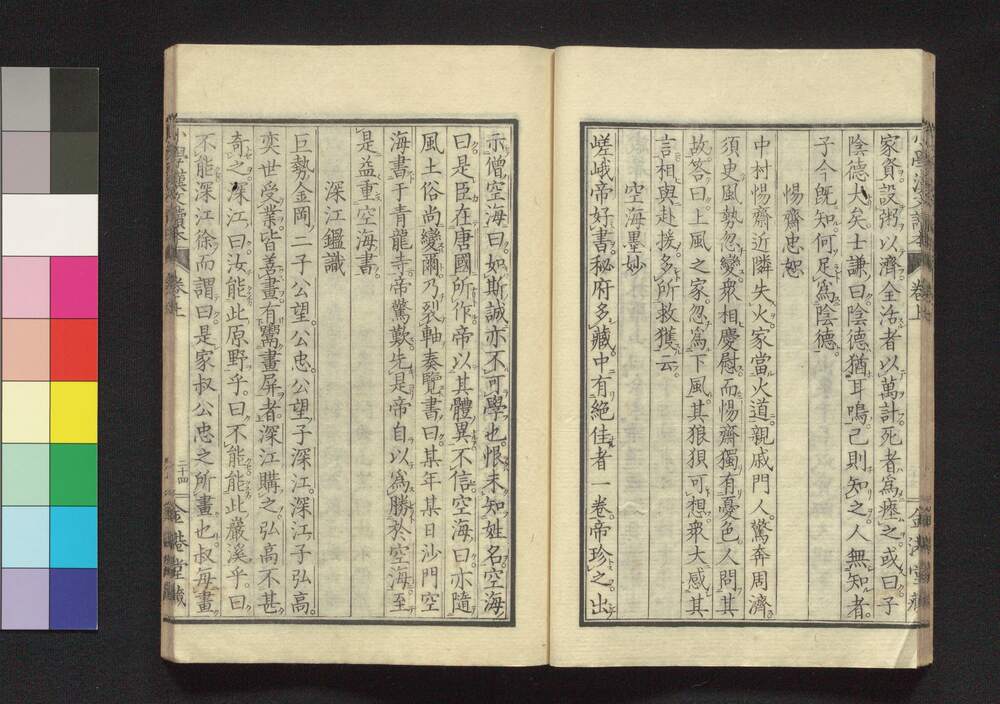 家資設粥以濟全活者以萬計死者爲瘞之或曰子
陰德大矣士謙曰陰德猶耳鳴己則知之人無知者
子今既知何足爲陰德
惕齋忠恕
中村惕齋近隣失火家當火道親戚門人驚奔周濟
須臾風勢忽變衆相慶慰而惕齋獨有憂色人問其
故答曰上風之家忽爲下風其狼狽可想衆大感其
言相與赴援多所救獲云
空海墨妙
嵯峨帝好書秘府多藏中有絶佳者一卷帝珍之出
示僧空海曰如斯誠亦不可學也恨未知姓名空海
曰是臣在唐國所作帝以其體異不信空海曰亦隨
風土俗尚變爾乃裂軸奏覽書曰某年某日沙門空
海書于青龍寺帝驚歎先是帝自以爲勝於空海至
是益重空海書
深江鑑識
巨勢金岡二子公望公忠公望子深江深江子弘高
奕世受業皆善畫有鬻畫屏者深江購之弘高不甚
奇之深江曰汝能此原野乎曰不能能此巖溪乎曰
不能深江徐而謂曰是家叔公忠之所畫也叔每畫
小學漢文讀本 卷上 三十四 金港堂藏